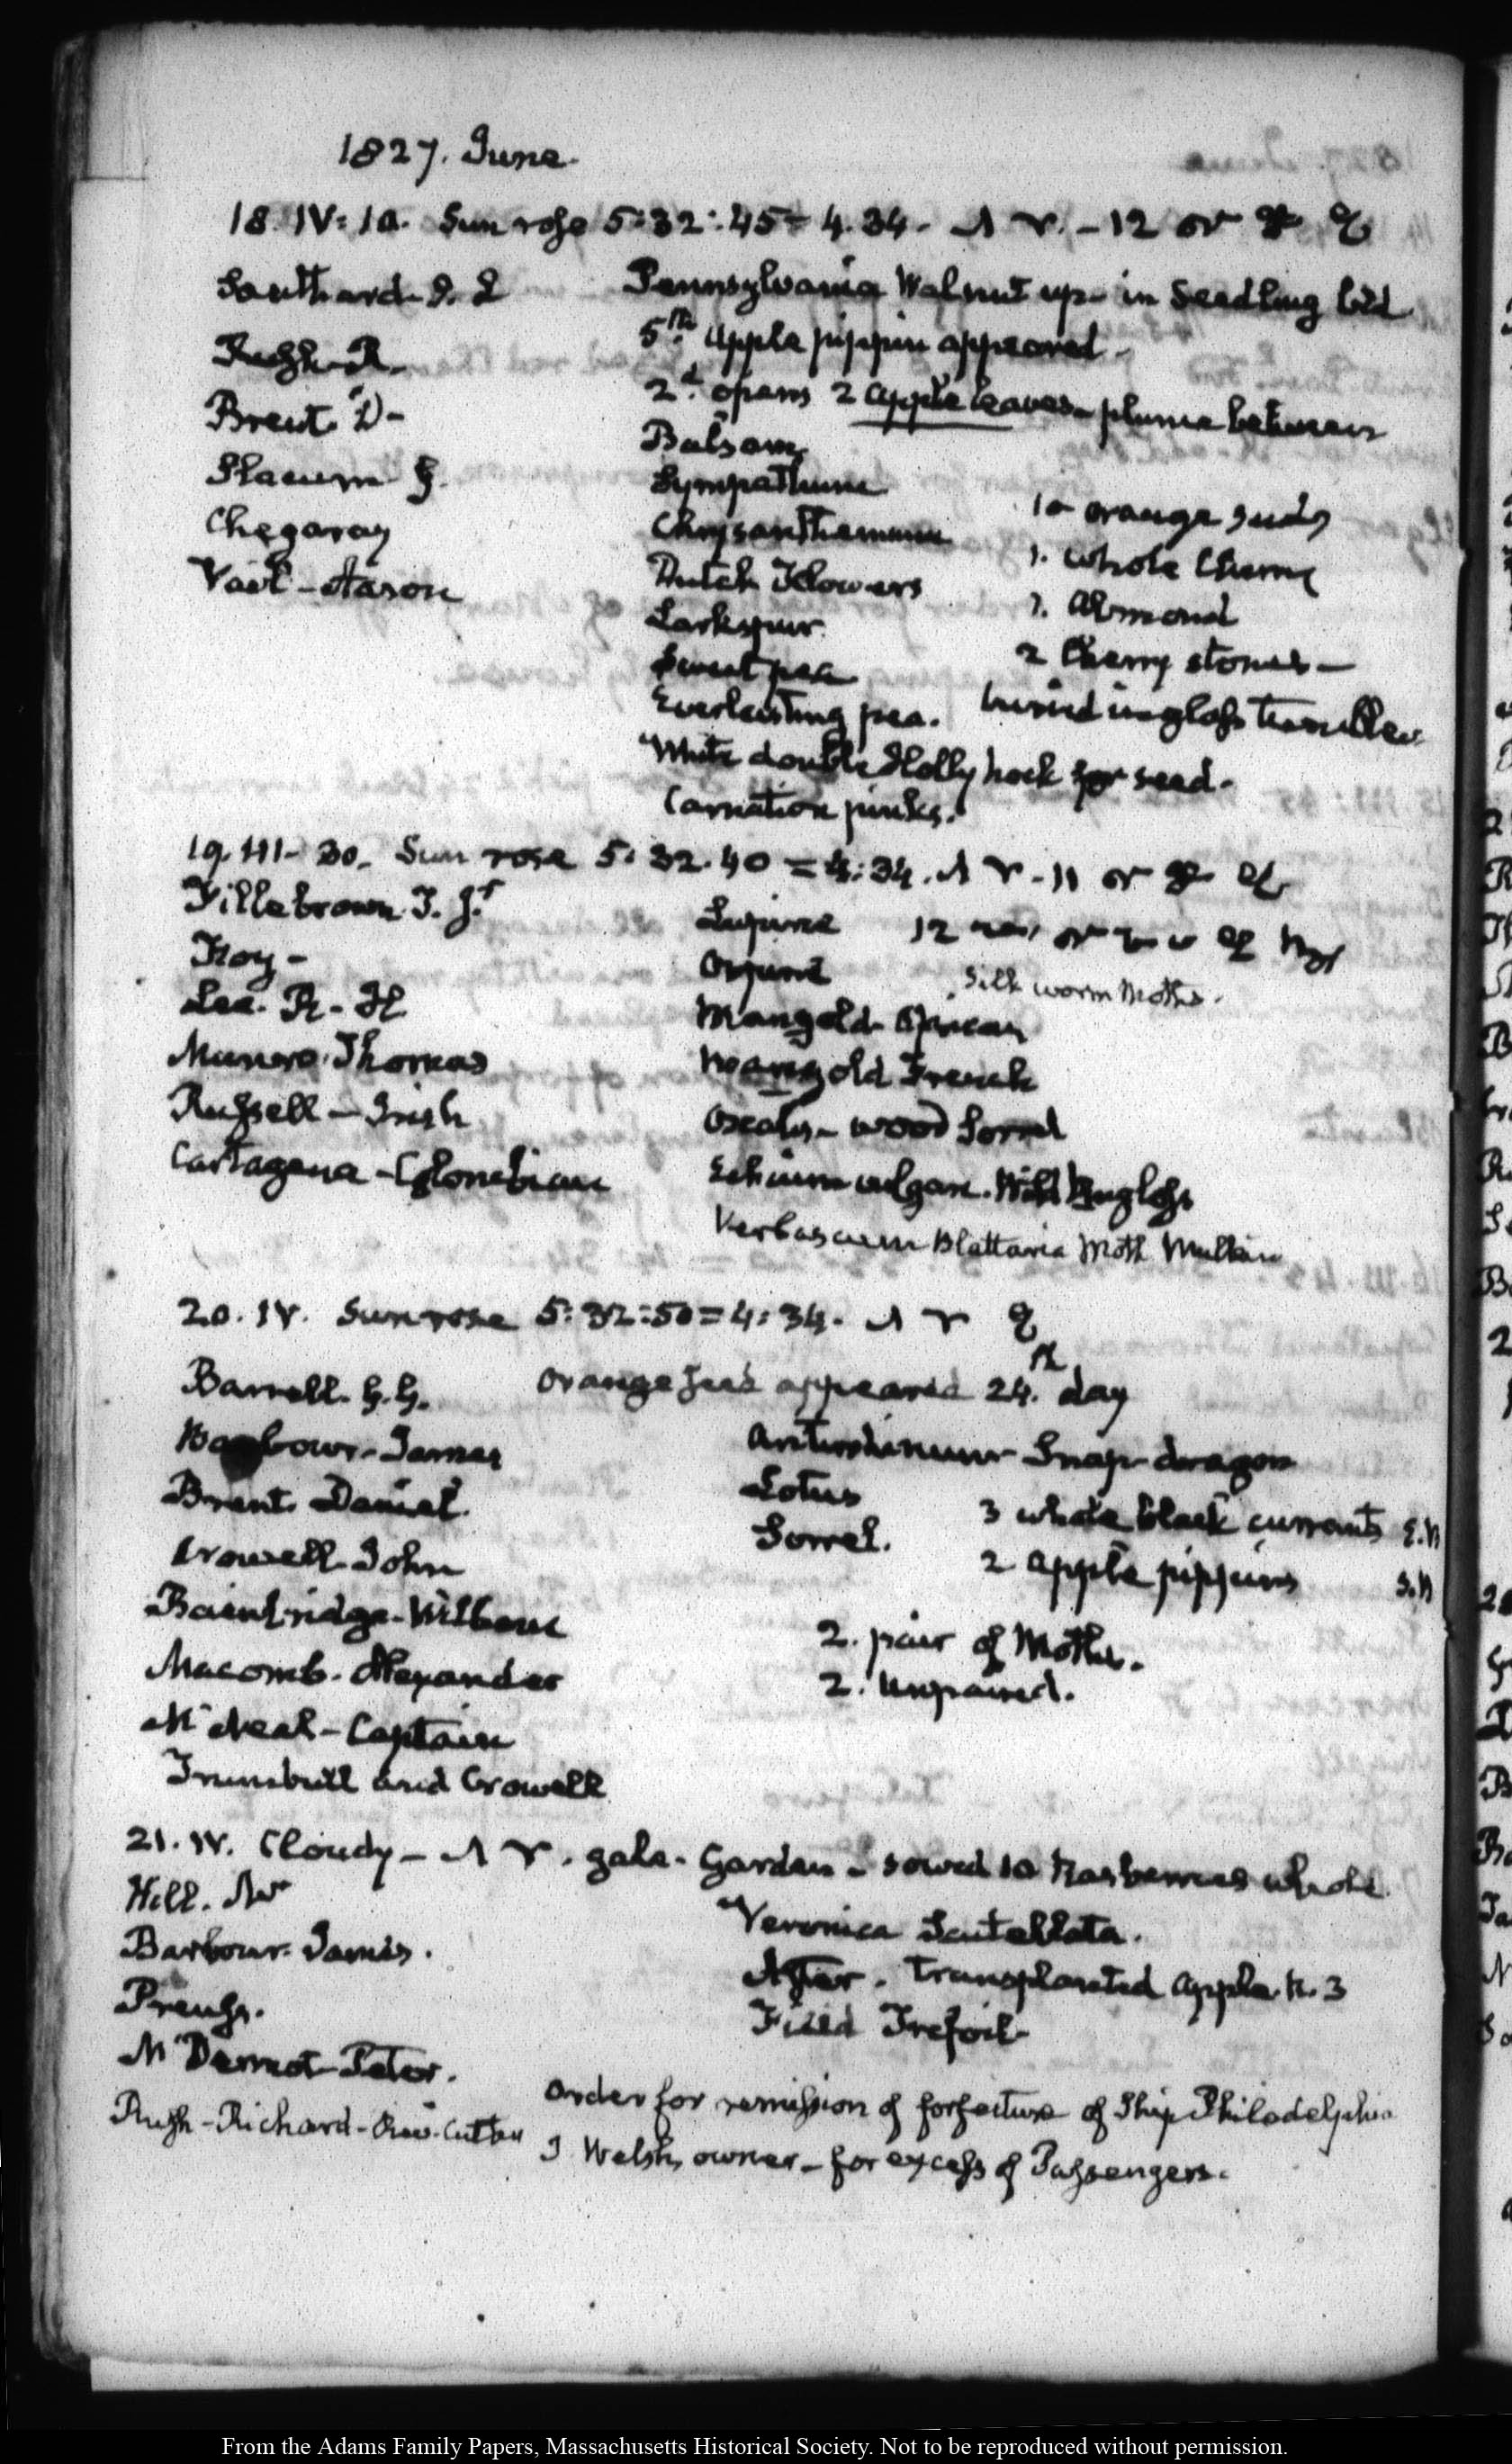 1827. June.
18. IV: 10. Sun rose 5:32:45 = 4.34. - 12 or
Southard. S. L
Pennsylvania Walnut up in Seedling bed
Rush. R.
5th. apple pippin appeared.
Brent. D-
2d. opens 2 apple leaves - plume between
Slacum G.
Chegaray
Vail - Aaron
Balsam,
Sympathum
Chrysanthemum
Dutch Flowers
Larkspur.
Sweet pea
Everlasting pea.
White double Holly hock for seed.
Carnation pinks.
10 orange seeds
1. whole Cherry
1. Almond
2 Cherry stones -
buried in glass tumbler.
19. III- 30. Sun rose 5:32.40 = 4:34. - 11 or
Fillebrown. T. Jr.
Lupine 12
Roy -
Lee. R. H.
Silk worm Moths.
Munro. Thomas
Marigold. African
Russell - Irish
Marigold French
Cartagena - Colombian
Oxalis - wood Sorrel
Echium vulgare. Wild Bugloss
Verbascum Blattaria Moth Mullein
20. IV. Sun rose 5:32:50 = 4:34.
Barrell. G. G.
Orange seed appeared 24.th day
Barbour - James
Antirrhinum - Snap-dragon
Brent. Daniel.
Lotus
3 whole black currants
Crowell. John
Sorrel.
2 apple pippins
Bainbridge - William
2. pair of Moths.
Macomb. Alexander
2. Unpaired.
McNeal - Captain
Trumbull and Crowell
21. IV. Cloudy - gale. Garden - sowed 10 Rasberries whole
Hill. Mr
Veronica Scutellata.
Barbour. James.
Aster. Transplanted apple. N. 3
Field Trefoil
McDermot - Peter.
Rush - Richard
Order for remission of forfeiture of Ship Philadelphia
J Welsh, owner - for excess of Passengers.
From the Adams Family Papers, Massachusetts Historical Society. Not to be reproduced without permission.